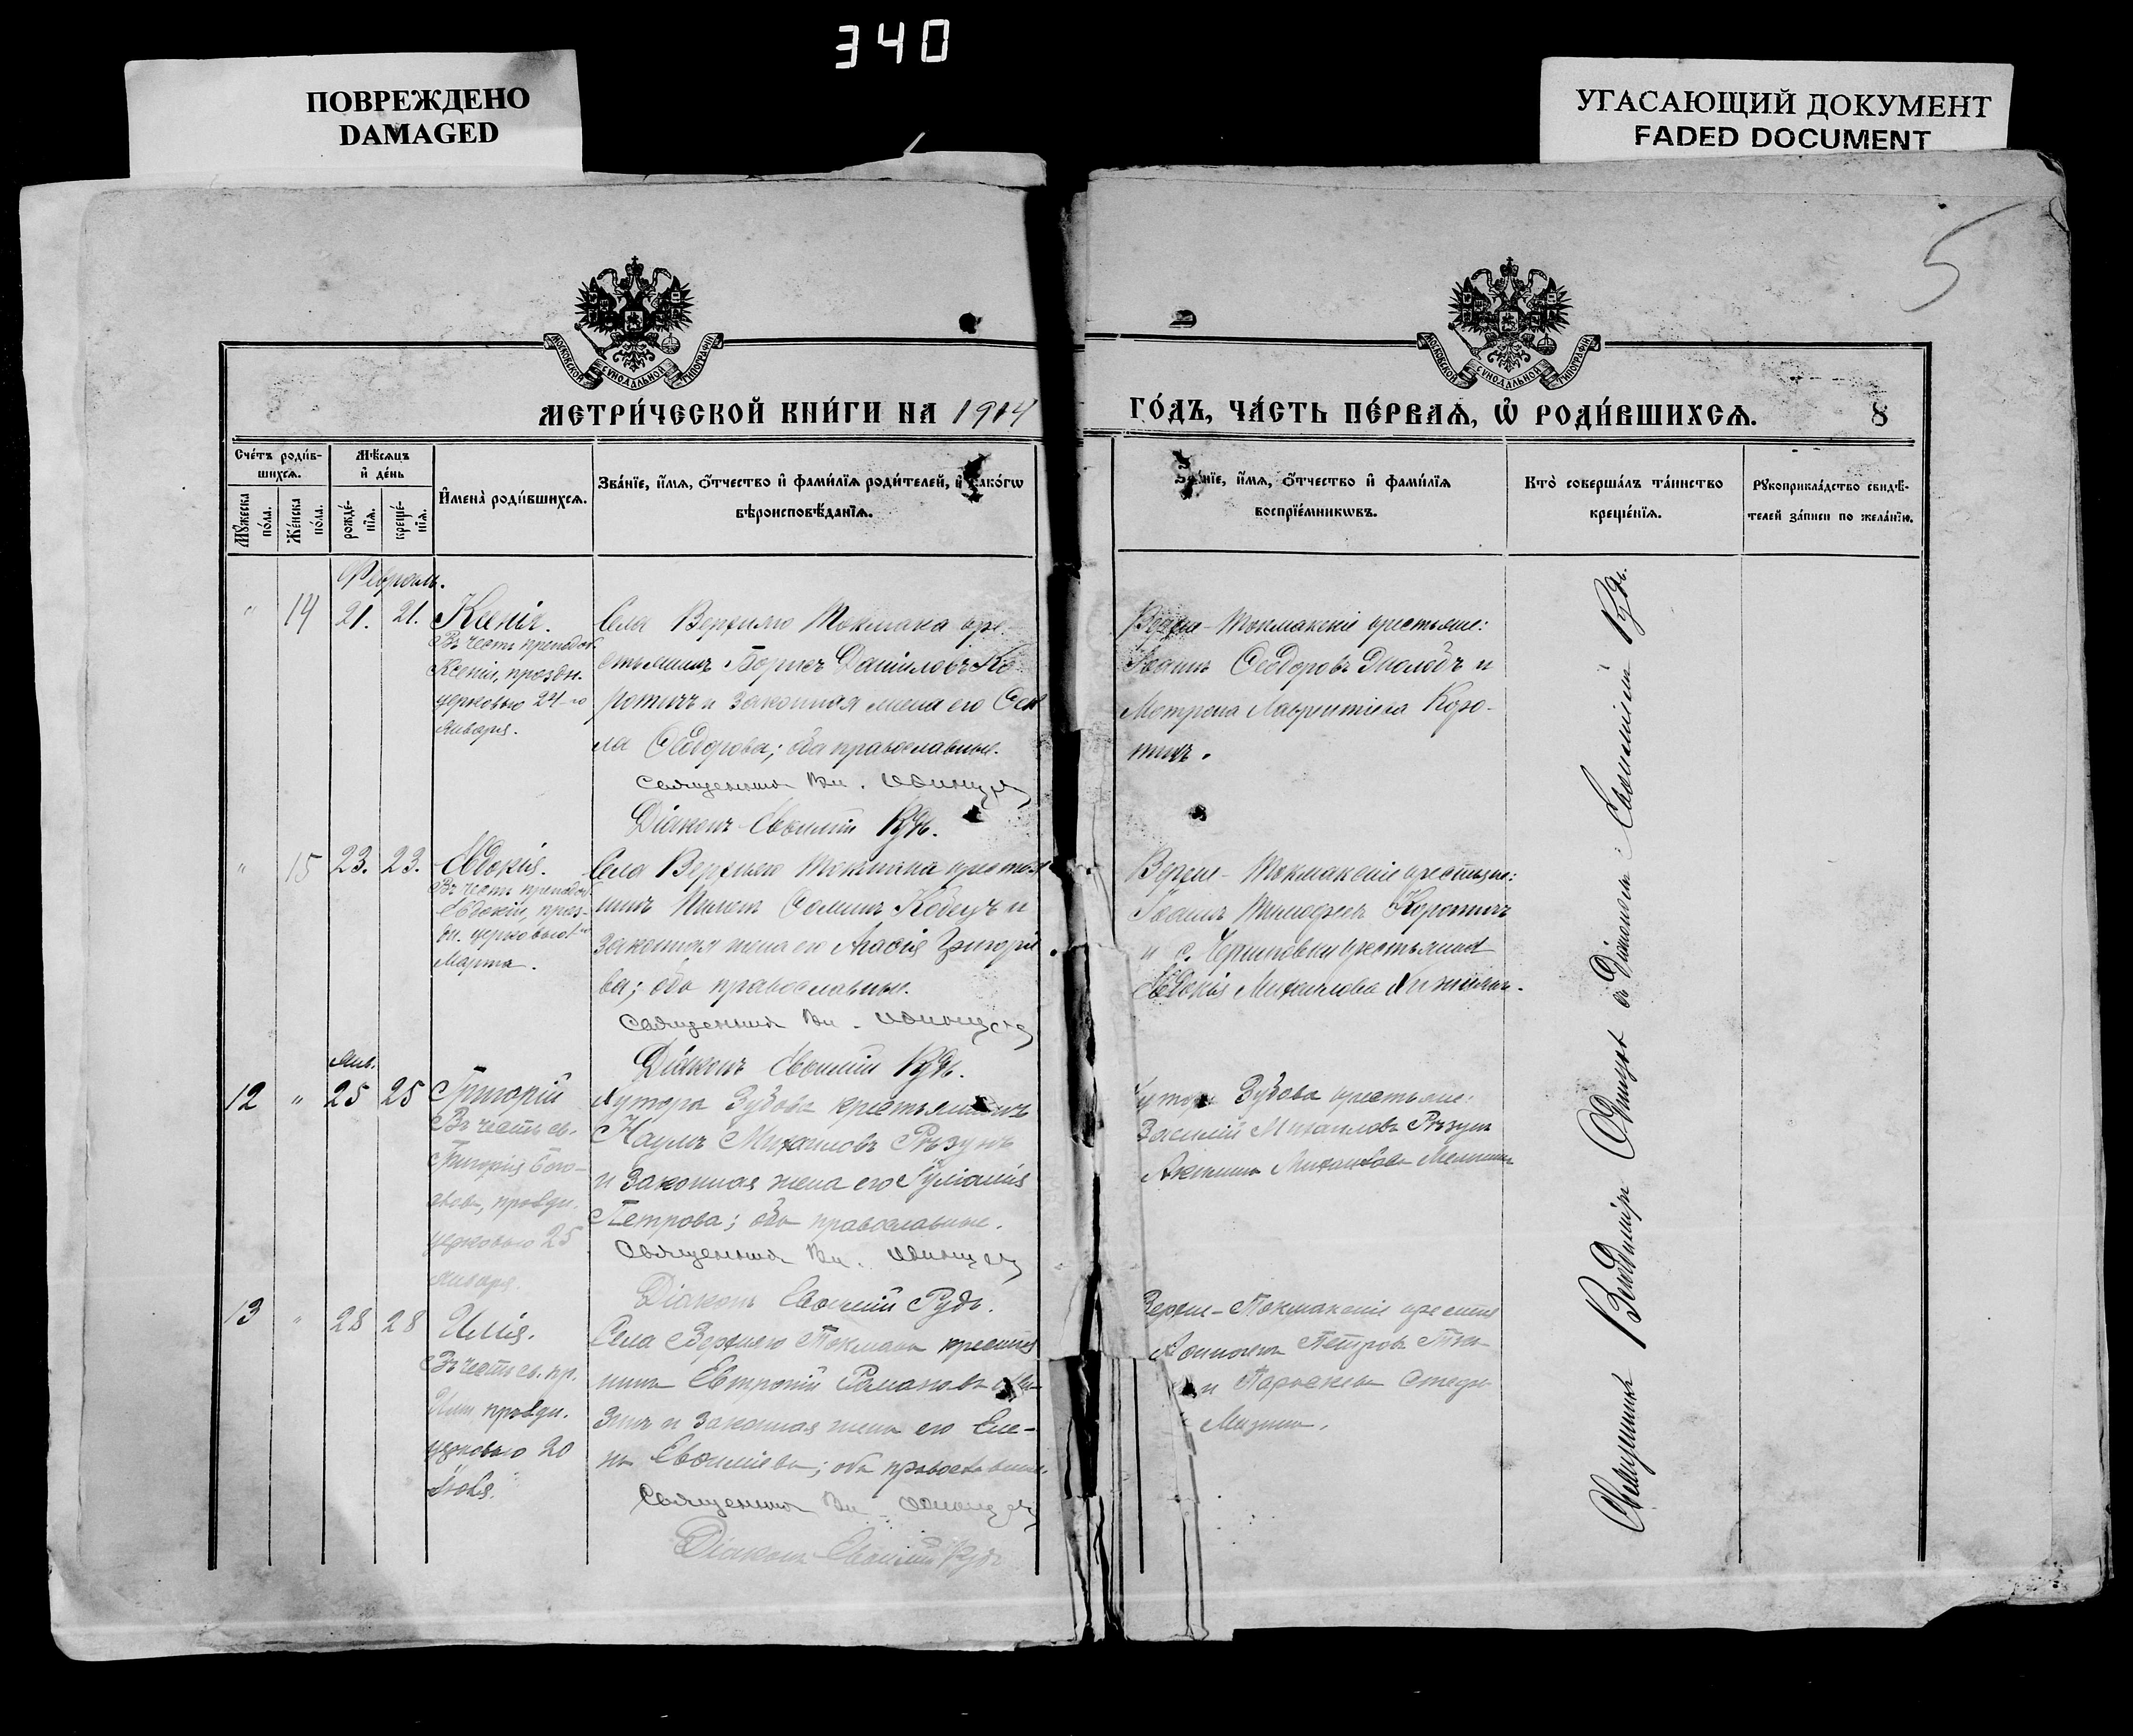 340
ПОВРЕЖДЕНО
DAMAGED
УГАСАЮЩИЙ ДОКУМЕНТ
FADED DOCUMENT
5
МОСКОВСКОЙ СѴНОДАЛЬНОЙ ТИПОГРАФІИ
МОСКОВСКОЙ СѴНОДАЛЬНОЙ ТИПОГРАФІИ
МЕТРИ́ЧЕСКОЙ КНИ́ГИ НА 1914
ГО́ДЪ, ЧА́СТЬ ПЕ́РВАѦ, Ѡ҆ РОДИ́ВШИХСѦ. 8
Сче́тъ роди́в-
шихсѧ.
Мѣ́сѧцъ
и҆ де́нь
Мꙋ́жеска по́ла.
Же́нска по́ла.
рожде́-
нїѧ.
креще́-
нїѧ.
И҆мена̀ роди́вшихсѧ.
Зва́нїе, и҆́мѧ, ѻ҆́тчество и҆ фами́лїѧ роди́телей, и҆ како́гѡ
вѣроисповѣ́данїѧ.
Зва́нїе, и҆́мѧ, ѻ҆́тчество и҆ фами́лїѧ
воспрїе́мникѡвъ.
Кто̀ соверша́лъ та́инство
креще́нїѧ.
Рꙋкоприкла́дство свидѣ́-
телей за́писи по жела́нїю.
Февраль.
" 14 21. 21. Ксенія.
Въ честь преподоб.
Ксеніи, праздн.
церковью 24-го
января.
Села Верхняго Токмака кре-
стьянинъ Борисъ Даниловъ Ко
ротичъ и законная жена его
Ѳеодорова; оба православные.
Священникъ Вл.
Діаконъ Евѳимій Рудь.
Верхне-Токмакскіе крестьяне:
Іоаннъ Ѳеодоровъ и
Мотрона Лаврентіева Коро-
тичъ.
" 15 23. 23. Евдокія.
Въ честь преподоб.
Евдокіи, празд-
н. церковью 1
Марта.
Села Верхняго Токмака крестья
нинъ Кобецъ и
законная жена его Агаѳія Григорье
ва; оба православные.
Священникъ Вл.
Діаконъ Евѳимій Рудь.
Верхне-Токмакскіе крестьяне:
Іоаннъ Тимоѳеевъ Коротичъ
и с. Черниговки крестьянка
Евдокія Михаилова
Янв.
12 " 25 25 Григорій
Въ честь св.
Григорія Бого-
слова, праздн.
церковью 25
января.
Хутора Зубова крестьянинъ
Наумъ Михаиловъ Рѣзунъ
и законная жена его Іуліанія
Петрова; оба православные.
Священникъ Вл.
Діаконъ Евѳимій Рудь.
Хутора Зубова крестьяне:
Василій Михаиловъ Рѣзунъ
Михаилова
13 " 28 28 Илія.
Въ честь св. пр.
Иліи праздн.
церковью 20
Іюля.
Села Верхняго Токмака крестья
нинъ Евтропій Романовъ
зинъ и законная жена его Еле-
на Евѳиміева; оба православные.
Священникъ Вл.
Діаконъ Евѳимій Рудь
Верхне-Токмакскіе крестья
Петровъ
и
Мизинъ.
Священникъ Владиміръ съ Діакономъ Евѳиміемъ Рудь.